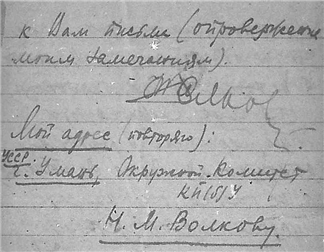 к Вам письма (опровержения
моим замечаниям).
Мой адрес (повторяю):
УССР
г. Умань Окружной Комитет
КП(б)У
Н. М. Волкову.